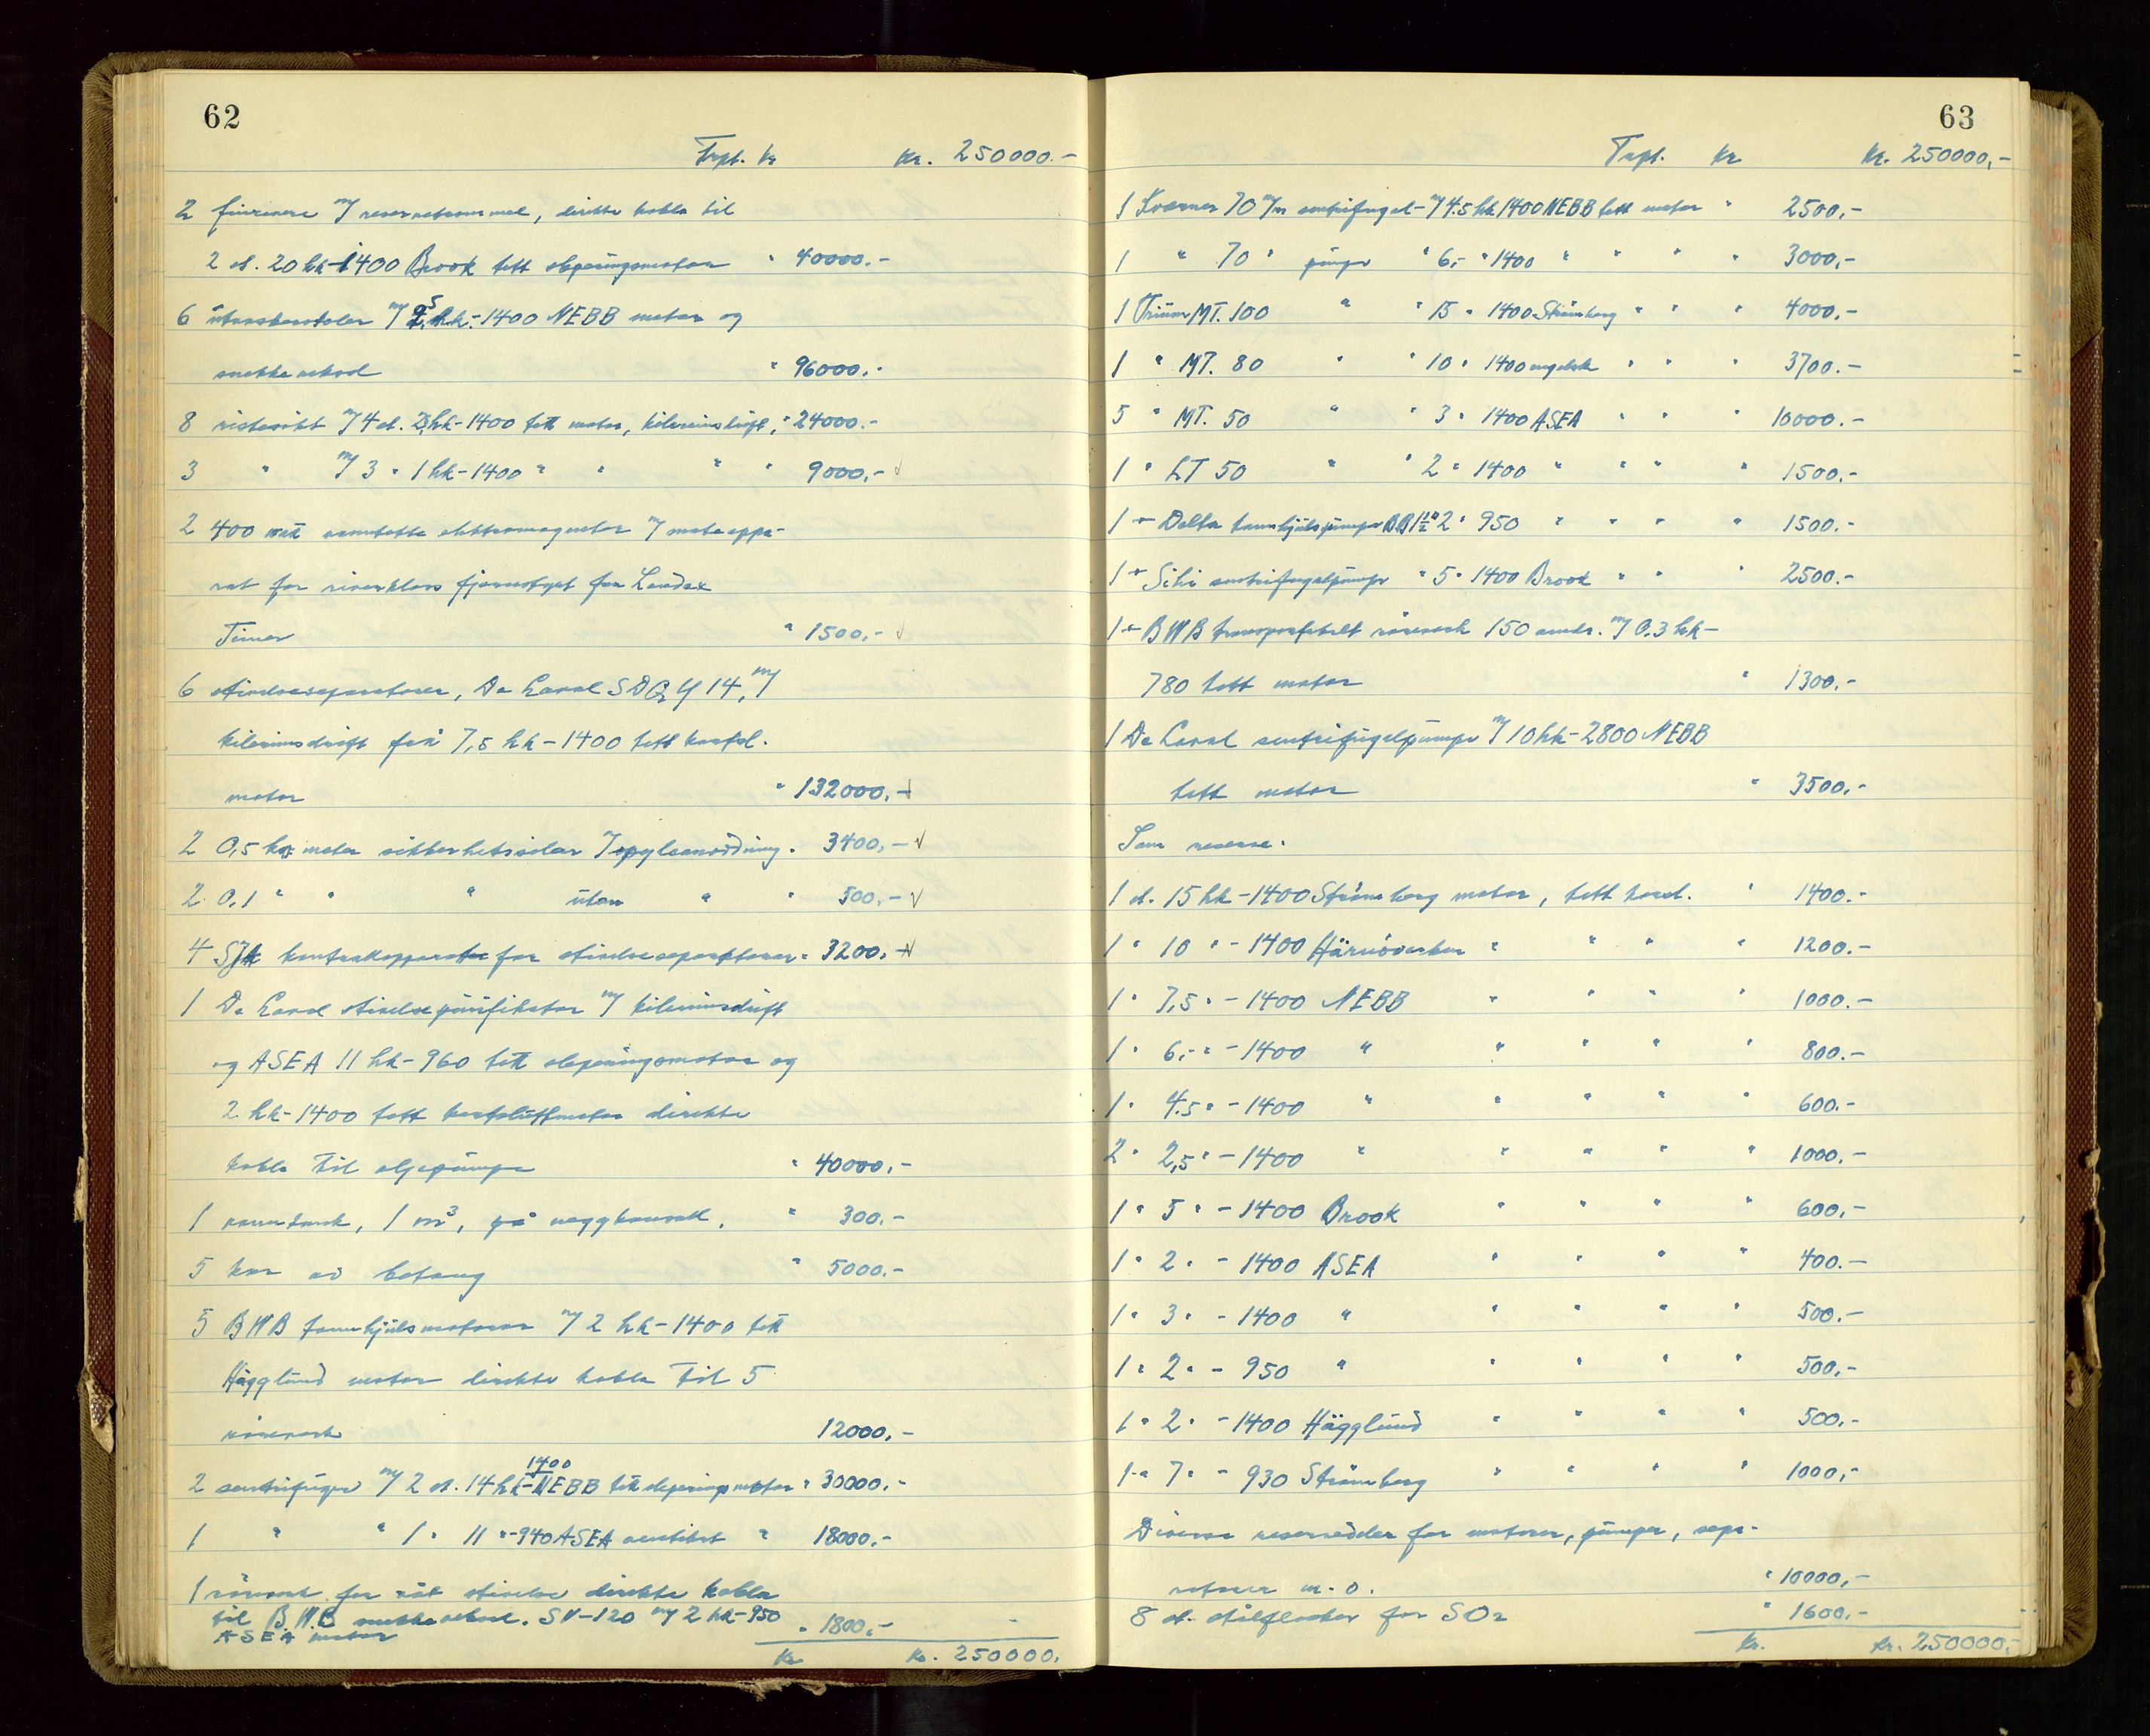 62
Trpt. kr Kr. 250000.-
2 finrivere m/ reservetrommel, direkte kobla til
2 st. 20 hk-1400 Brook tett sleperingsmotor " 40000.-
6 m/ hk-1400 NEBB motor og
snekkeveksel " 96000.-
8 ristesikt m/ 4 st. hk-1400 tett motor, kilereimsdrift, " 24000.-
3 " m/ 3 " 1 hk-1400 " " " " 9000,-
2 400 watt vanntette elektromagneter m/ mateappa-
rat for fjernstyrt fra Londex
Timer " 1500,-
6 stivelseseparatorer, De Laval SDQY 14, m/
kilereimsdrift frå 7,5 hk-1400 tett kortsl.
motor " 132000,-
2 0,5 hk motor m/ spyleanordning " 3400,-
2 0,1 " " " utan " " 500,-
4 kontrollapparater for stivelseseparatorer " 3200,-
1 De Laval stivelsepurifikator m/ kilereimsdrift
og ASEA 11 hk-960 tett sleperingsmotor og
2 hk-1400 tett kortsluttmotor direkte
kobla til oljepumpe " 40000,-
1 vanntank, 1 m³, på veggkonsoll. " 300.-
5 kar av betong " 5000.-
5 BWB tannhjulsmotorar m/ 2 hk-1400 tett
Hägglund motor direkte kobla til 5
røreverk 12000,-
2 sentrifuger m/ 2 st. 14 hk-1400 NEBB tett sleperingsmotor " 30000.-
1 " " 1 " 11 "-940 ASEA ventilert " 18000.-
1 røreverk for rå stivelse direkte kobla
til B.W.B snekkeveksel. SV-120 m/ 2 hk-950
ASEA motor " 1800,-
Kr Kr. 250000.
63
Trpt. Kr Kr. 250000,-
1 Kværner 70 m/m sentrifugal- m/ 4.5 hk 1400 NEBB tett motor " 2500,-
1 " 70 " pumpe " 6,- " 1400 " " " " 3000,-
1 Trium MT. 100 " " 15 " 1400 Strömberg " " " 4000,-
1 " MT. 80 " " 10 " 1400 engelsk " " " 3700.-
5 " MT. 50 " " 3 " 1400 ASEA " " " 10000.-
1 " LT 50 " " 2 " 1400 " " " " 1500.-
1 Delta tannhjulspumpe BB 1½" 2 " 950 " " " " 1500.-
1 Sihi sentrifugalpumpe " 5 " 1400 Brook " " " 2500.-
1 BWB transportabelt røreverk 150 omdr. m/ 0.3 hk-
780 tett motor " 1300,-
1 De Laval sentrifugalpumpe m/ 10 hk-2800 NEBB
tett motor " 3500,-
Som reserve.
1 st. 15 hk-1400 Strömberg motor, tett kortsl. " 1400.-
1 " 10 " -1400 Härnöverken " " " " 1200.-
1 " 7,5 " -1400 NEBB " " " " 1000.-
1 " 6,- " -1400 " " " " " 800.-
1 " 4.5 " -1400 " " " " " 600.-
2 " 2,5 " -1400 " " " " " 1000.-
1 " 5 " -1400 Brook " " " " 600,-
1 " 2 " -1400 ASEA " " " " 400.-
1 " 3 " -1400 " " " " " 500.-
1 " 2 " -950 " " " " " 500,-
1 " 2 " -1400 Hägglund " " " " 500,-
1 " 7 " -930 Strömberg " " " " 1000,-
Diverse reservedeler for motorer, pumper, sepa-
ratorer m.o. " 10000,-
8 st. stålflasker for SO2 " 1600,-
Kr. Kr. 250000,-